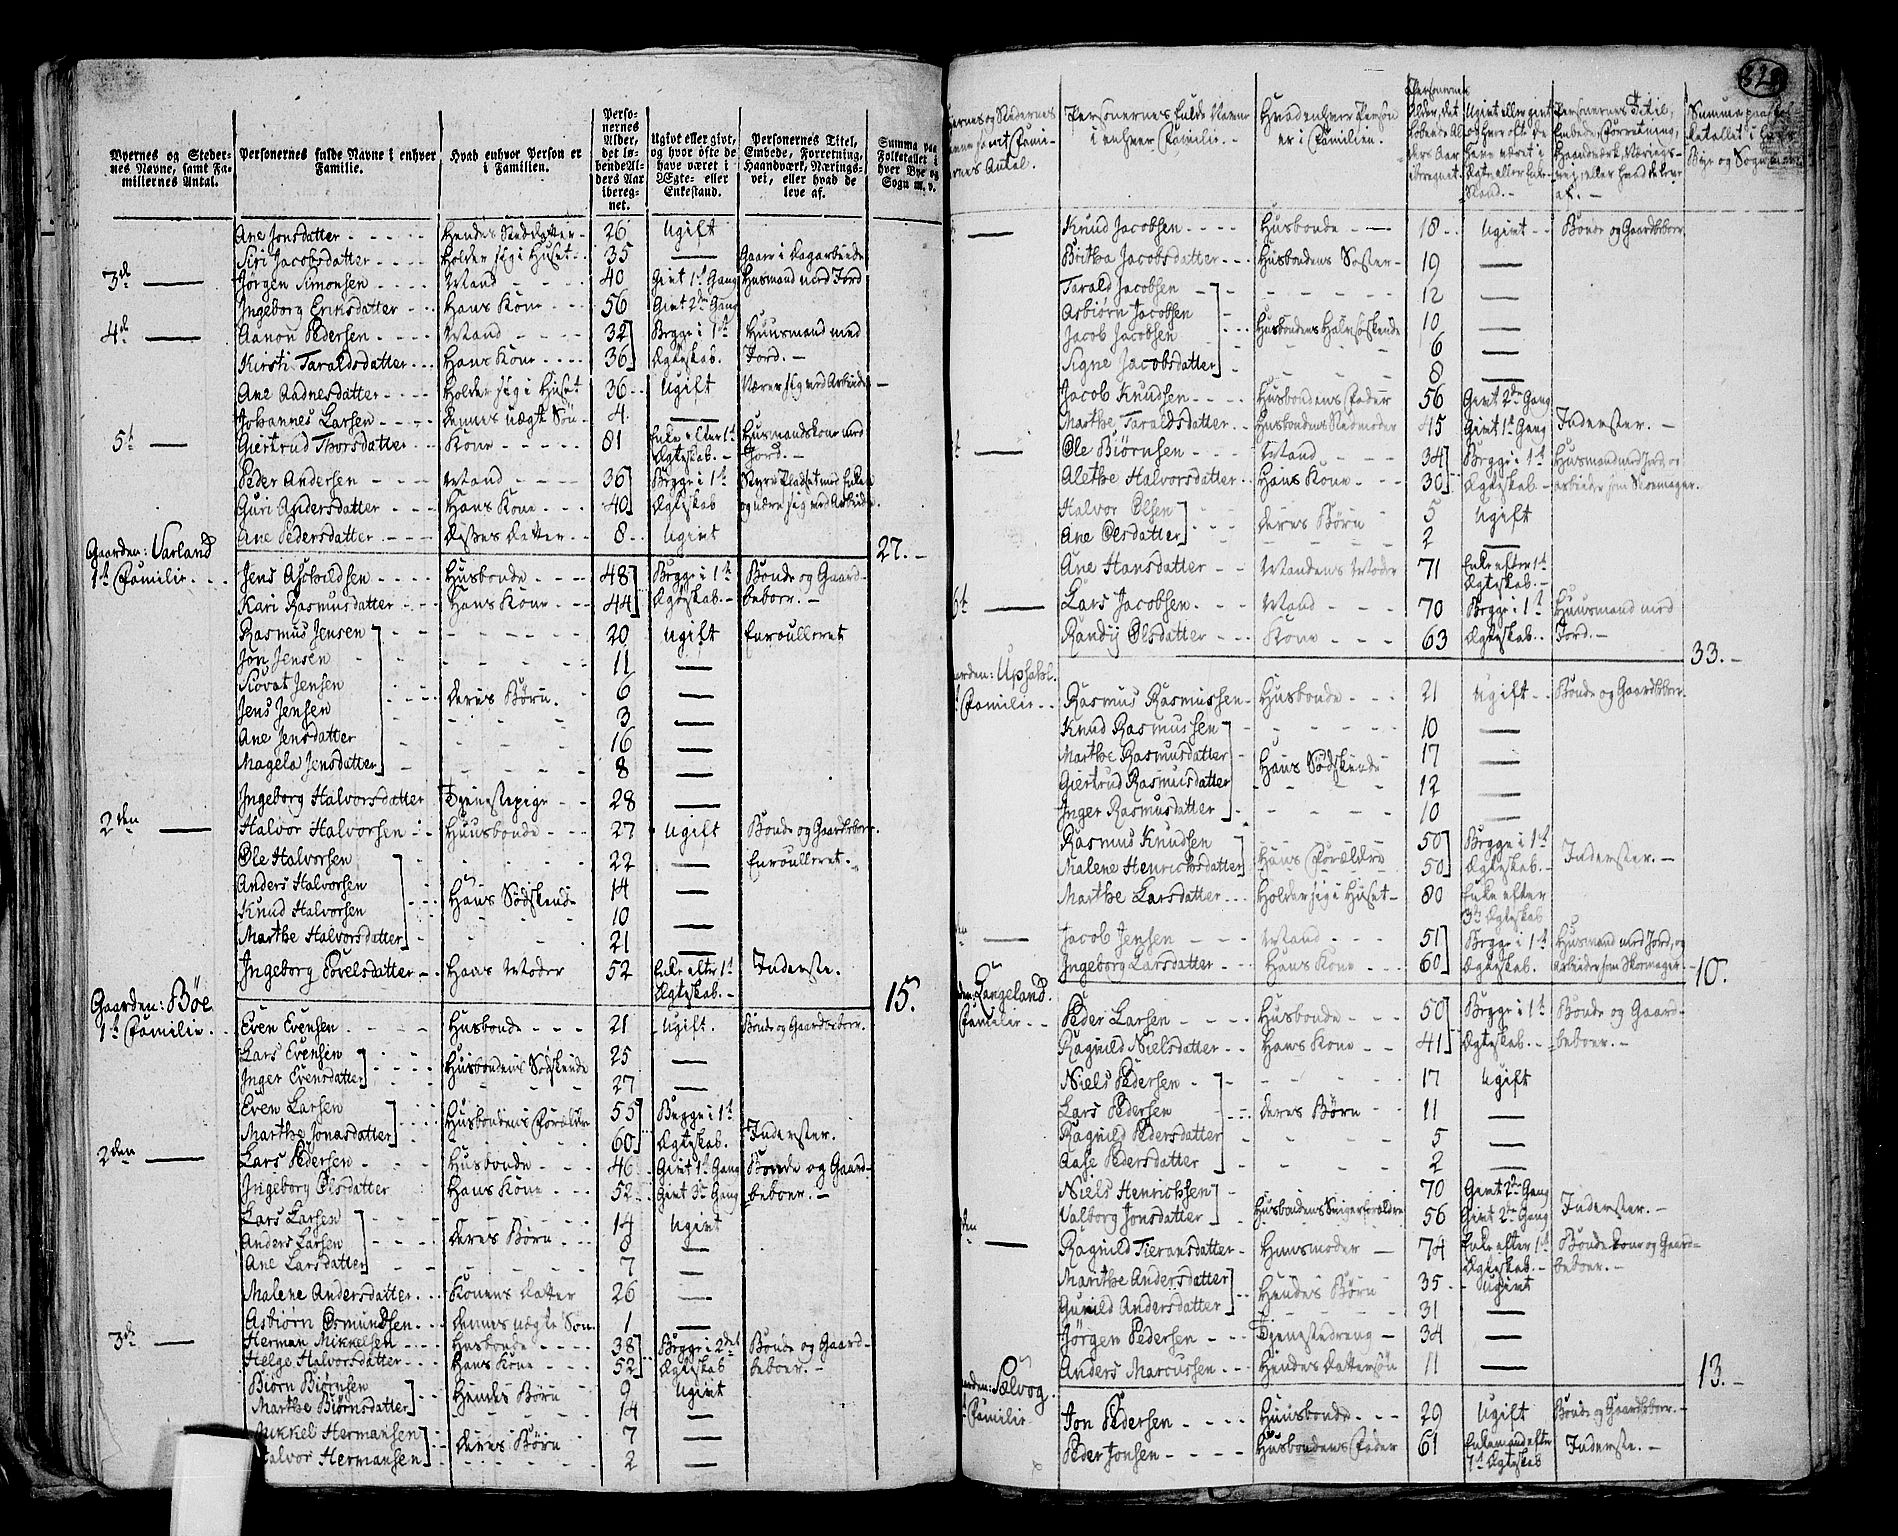 Byernes og Stedernes Navne, samt Familiernes Antal. | Personernes fulde Navne i enhver Familie. | Hvad enhver Person er i Familien. | Personernes Alder, det løbende Alders Aar iberegnet. | Ugivt eller givt, og hvor ofte de have været i Ægte- eller Enkestand. | Personernes Titel, Embede, Forretning, Haandværk, Næringsvei, eller hvad de leve af. | Summa paa Folketallet i hver Bye og Sogn m. v.
Ane Jonsdatter | Hendes Seddatter | 26 | Ugift
Siri Jacobsdatter | Holder sig i Huset | 35 | — | Gaaer i Dagarbeide
3de — | Jørgen Simonsen | Mand | 40 | Givt 1te Gang | Husmand med Jord
Ingeborg Eriksdatter | Hans Kone | 56 | Givt 2den Gang
4de — | Aanon Pedersen | Mand | 32 | Begge i 1te | Huusmand med
Kirsti Taraldsdatter | Hans Kone | 36 | Ægteskab. | Jord. —
Ane Aadnesdatter | Holder sig i Huset | 36 | Ugift | Nærer sig med Arbeide
Johannes Larsen | Dennes uægte Søn | 4 | —
5te — | Giertrud Thorsdatter | Kone | 81 | Enke efter 1te Ægteskab. — | Husmandskone med Jord. —
Peder Andersen | Mand | 36 | Begge i 1te | Styre Pladset med Enken
Guri Andersdatter | Hans Kone | 40 | Ægteskab | og nære sig med Arbeide
Ane Pedersdatter | Disses Datter | 8 | Ugivt
27. —
Gaarden: Varland
1te Familie. | Jens Asbildsen | Husbonde | 48 | Begge i 1te | Bonde og Gaard-
Kari Rasmusdatter | Hans Kone | 44 | Ægteskab. — | beboer. —
Rasmus Jensen | 20 | Ugift | Enroulleret
Jon Jensen | 11 | —
Siovat Jensen | Deres Børn. | 6 | —
Jens Jensen | 3 | —
Ane Jensdatter | 16 | —
Magela Jensdatter | 8 | —
Ingeborg Halvorsdatter | Tjenestepige | 28 | —
2den — | Halvor Halvorsen | Huusbonde | 27 | Ugift | Bonde og Gaardbeboer.
Ole Halvorsen | 22 | — | Enroulleret.
Anders Halvorsen | Hans Södskende | 14 | —
Knud Halvorsen | 10 | —
Marthe Halvorsdatter | 21 | —
Ingeborg Povelsdatter | Hans Moder | 52 | Enke efter 1te Ægteskab. — | Inderste.
15.
Gaarden: Böe
1te Familie. | Even Evensen | Husbonde | 21 | Ugift. | Bonde og Gaardbeboer.
Lars Evensen | Husbondens Södskende | 25 | —
Inger Evensdatter | 27 | —
Even Larsen | Husbondens Forældre | 55 | Begge i 1te
Marthe Jonasdatter | 60 | Ægteskab. | Inderster.
2den — | Lars Pedersen | Husbonde | 46 | Givt 1te Gang | Bonde og Gaard-
Ingeborg Olsdatter | Hans Kone | 52 | Givt 3de Gang | beboer. —
Lars Larsen | Deres Børn | 14 | Ugivt
Anders Larsen | 8 | —
Ane Larsdatter | 7 | —
Malene Andersdatter | Konens Datter | 26 | —
Asbiørn Osmundsen | Dennes uægte Søn | 1 | —
3de — | Herman Mikkelsen | Husbonde | 38 | Begge i 2det | Bonde og Gaard-
Helge Halvorsdatter | Hans Kone | 52 | Ægteskab | beboer. —
Biørn Biørnsen | Hendes Børn | 9 | Ugivt
Marthe Biørnsdatter | 14 | —
Mikkel Hermansen | Deres Børn | 7 | —
Halvor Hermansen | 2 | —
Personernes fulde Navne i enhver Familie. | Hvad enhver Person er i Familien. | Personernes Alder, det løbende Alders Aar iberegnet. | Ugivt eller givt og hvor oft de have været i Ægte eller Enkestand. — | Personernes Titel, Embede, Forretning, Haandværk, Næringsvei, eller hvad de leve af. —
— | Knud Jacobsen | Husbonde | 18 | Ugivt | Bonde og Gaardbeboer
Britha Jacobsdatter | Husbondens Søster | 19 | —
Tarald Jacobsen | 12 | —
Asbiørn Jacobsen | Husbondens Halvsøskende | 10 | —
Jacob Jacobsen | 6 | —
Signe Jacobsdatter | 8 | —
Jacob Knudsen | Husbondens Fader | 56 | Givt 2den Gang
Marthe Taraldsdatter | Husbondens Stedmoder | 45 | Givt 1te Gang | Inderster. —
— | Ole Biørnsen | Mand | 34 | Begge i 1te | Husmand med Jord, og
Alethe Halvorsdatter | Hans Kone | 30 | Ægteskab — | arbeider som Skoemager.
Halvor Olsen | Deres Børn | 5 | Ugift
Ane Olsdatter | 2 | —
Ane Hansdatter | Mandens Moder | 71 | Enke efter 1te Ægteskab. —
6te — | Lars Jacobsen | Mand | 70 | Begge i 1te | Huusmand med
Randij Olsdatter | Kone | 63 | Ægteskab. | Jord. —
33. —
Familie | Rasmus Rasmussen | Husbonde | 21 | Ugift | Bonde og Gaardbeboer
Knud Rasmussen | 10 | —
Marthe Rasmusdatter | Hans Södskende | 17 | —
Giertrud Rasmusdatter | 12 | —
Inger Rasmusdatter | 10 | —
Rasmus Knudsen | Hans Forældre | 50 | Begge i 1te
Malene Henrichsdatter | 50 | Ægteskab. — | Inderster. —
Marthe Larsdatter | Holder sig i Huset | 80 | Enke efter 3de Ægteskab
— | Jacob Jensen | Mand | 51 | Begge i 1te | Husmand med Jord, og
Ingeborg Larsdatter | Hans Kone | 60 | Ægteskab. | Arbeider som Skoemager.
10.
Langeland.
Familie | Peder Larsen | Husbonde | 50 | Begge i 1te | Bonde og Gaard-
Ragnild Nielsdatter | Hans Kone | 41 | Ægteskab. — | beboer. —
Niels Pedersen | 17 | Ugift
Lars Pedersen | Deres Børn | 11 | —
Ragnild Pedersdatter | 5 | —
Aase Pedersdatter | 2 | —
Niels Henrichsen | Husbondens Svigerforældre | 70 | Givt 2den Gang
Valborg Jonsdatter | 56 | Givt 2den Gang | Inderster. —
— | Ragnild Tieransdatter | Huusmoder | 74 | Enke efter 1te Ægteskab. — | Bondekone og Gaardbeboer. —
Marithe Andersdatter | Hendes Børn | 35 | Ugivt
Gunild Andersdatter | 31 | —
Jørgen Pedersen | Tjenestedreng | 34 | —
Anders Marcussen | Hendes Dattersøn | 11 | —
13. —
Sælvog.
Familie | Jon Pedersen | Huusbonde | 29 | Ugift | Bonde og Gaardbeboer. —
Peder Jonsen | Husbondens Fader | 61 | Enkemand efter 1te Ægteskab | Inderste. —